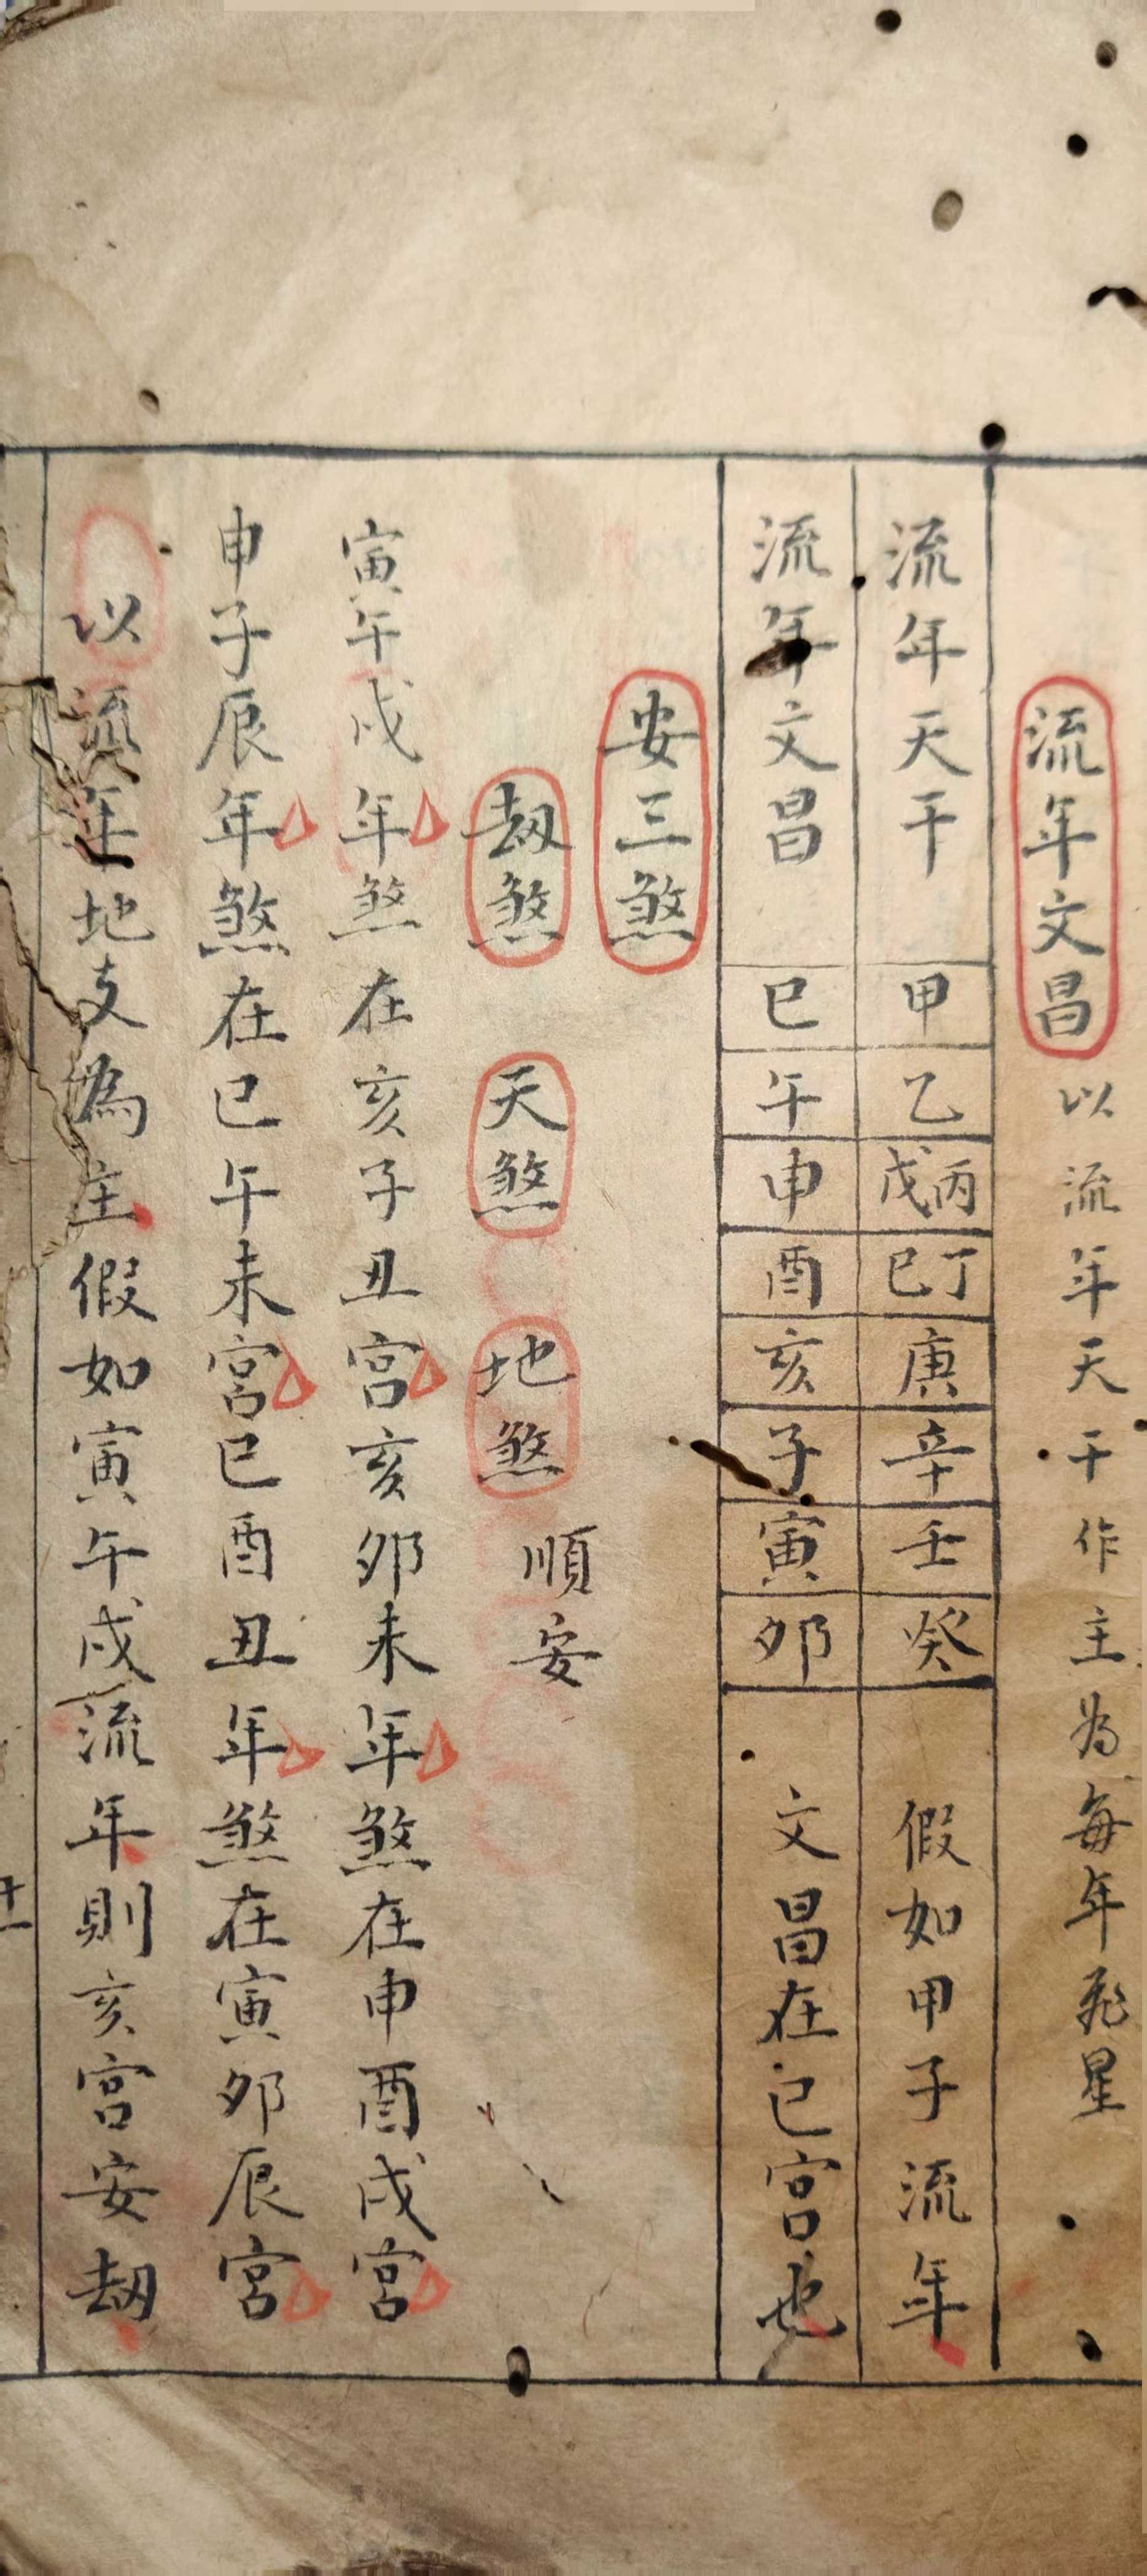 流年文昌以流年天干作主为每年飛星
流年天干甲乙丙戊丁已庚辛壬癸假如甲子流年
流年文昌巳午申酉亥子寅卯文昌在巳宫也
安三煞
刼煞天煞地煞順安
寅午戌年煞在亥子丑宫亥卯未年煞在申酉戌宫
申子辰年煞在巳午未宫巳酉丑年煞在寅卯辰宫
以流年地支為主假如寅午戌流年則亥宫安刼
十一